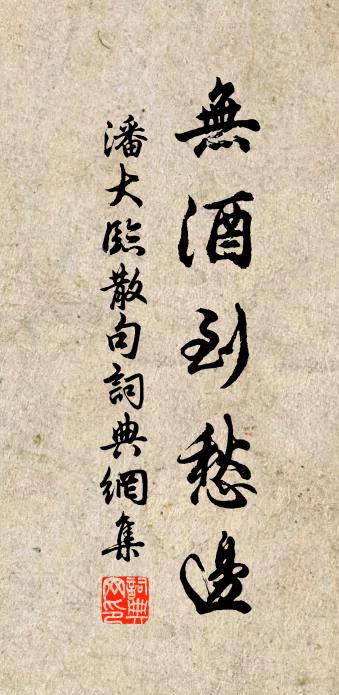 無酒到愁邊
潘大臨散句詞典網集
詞典网印